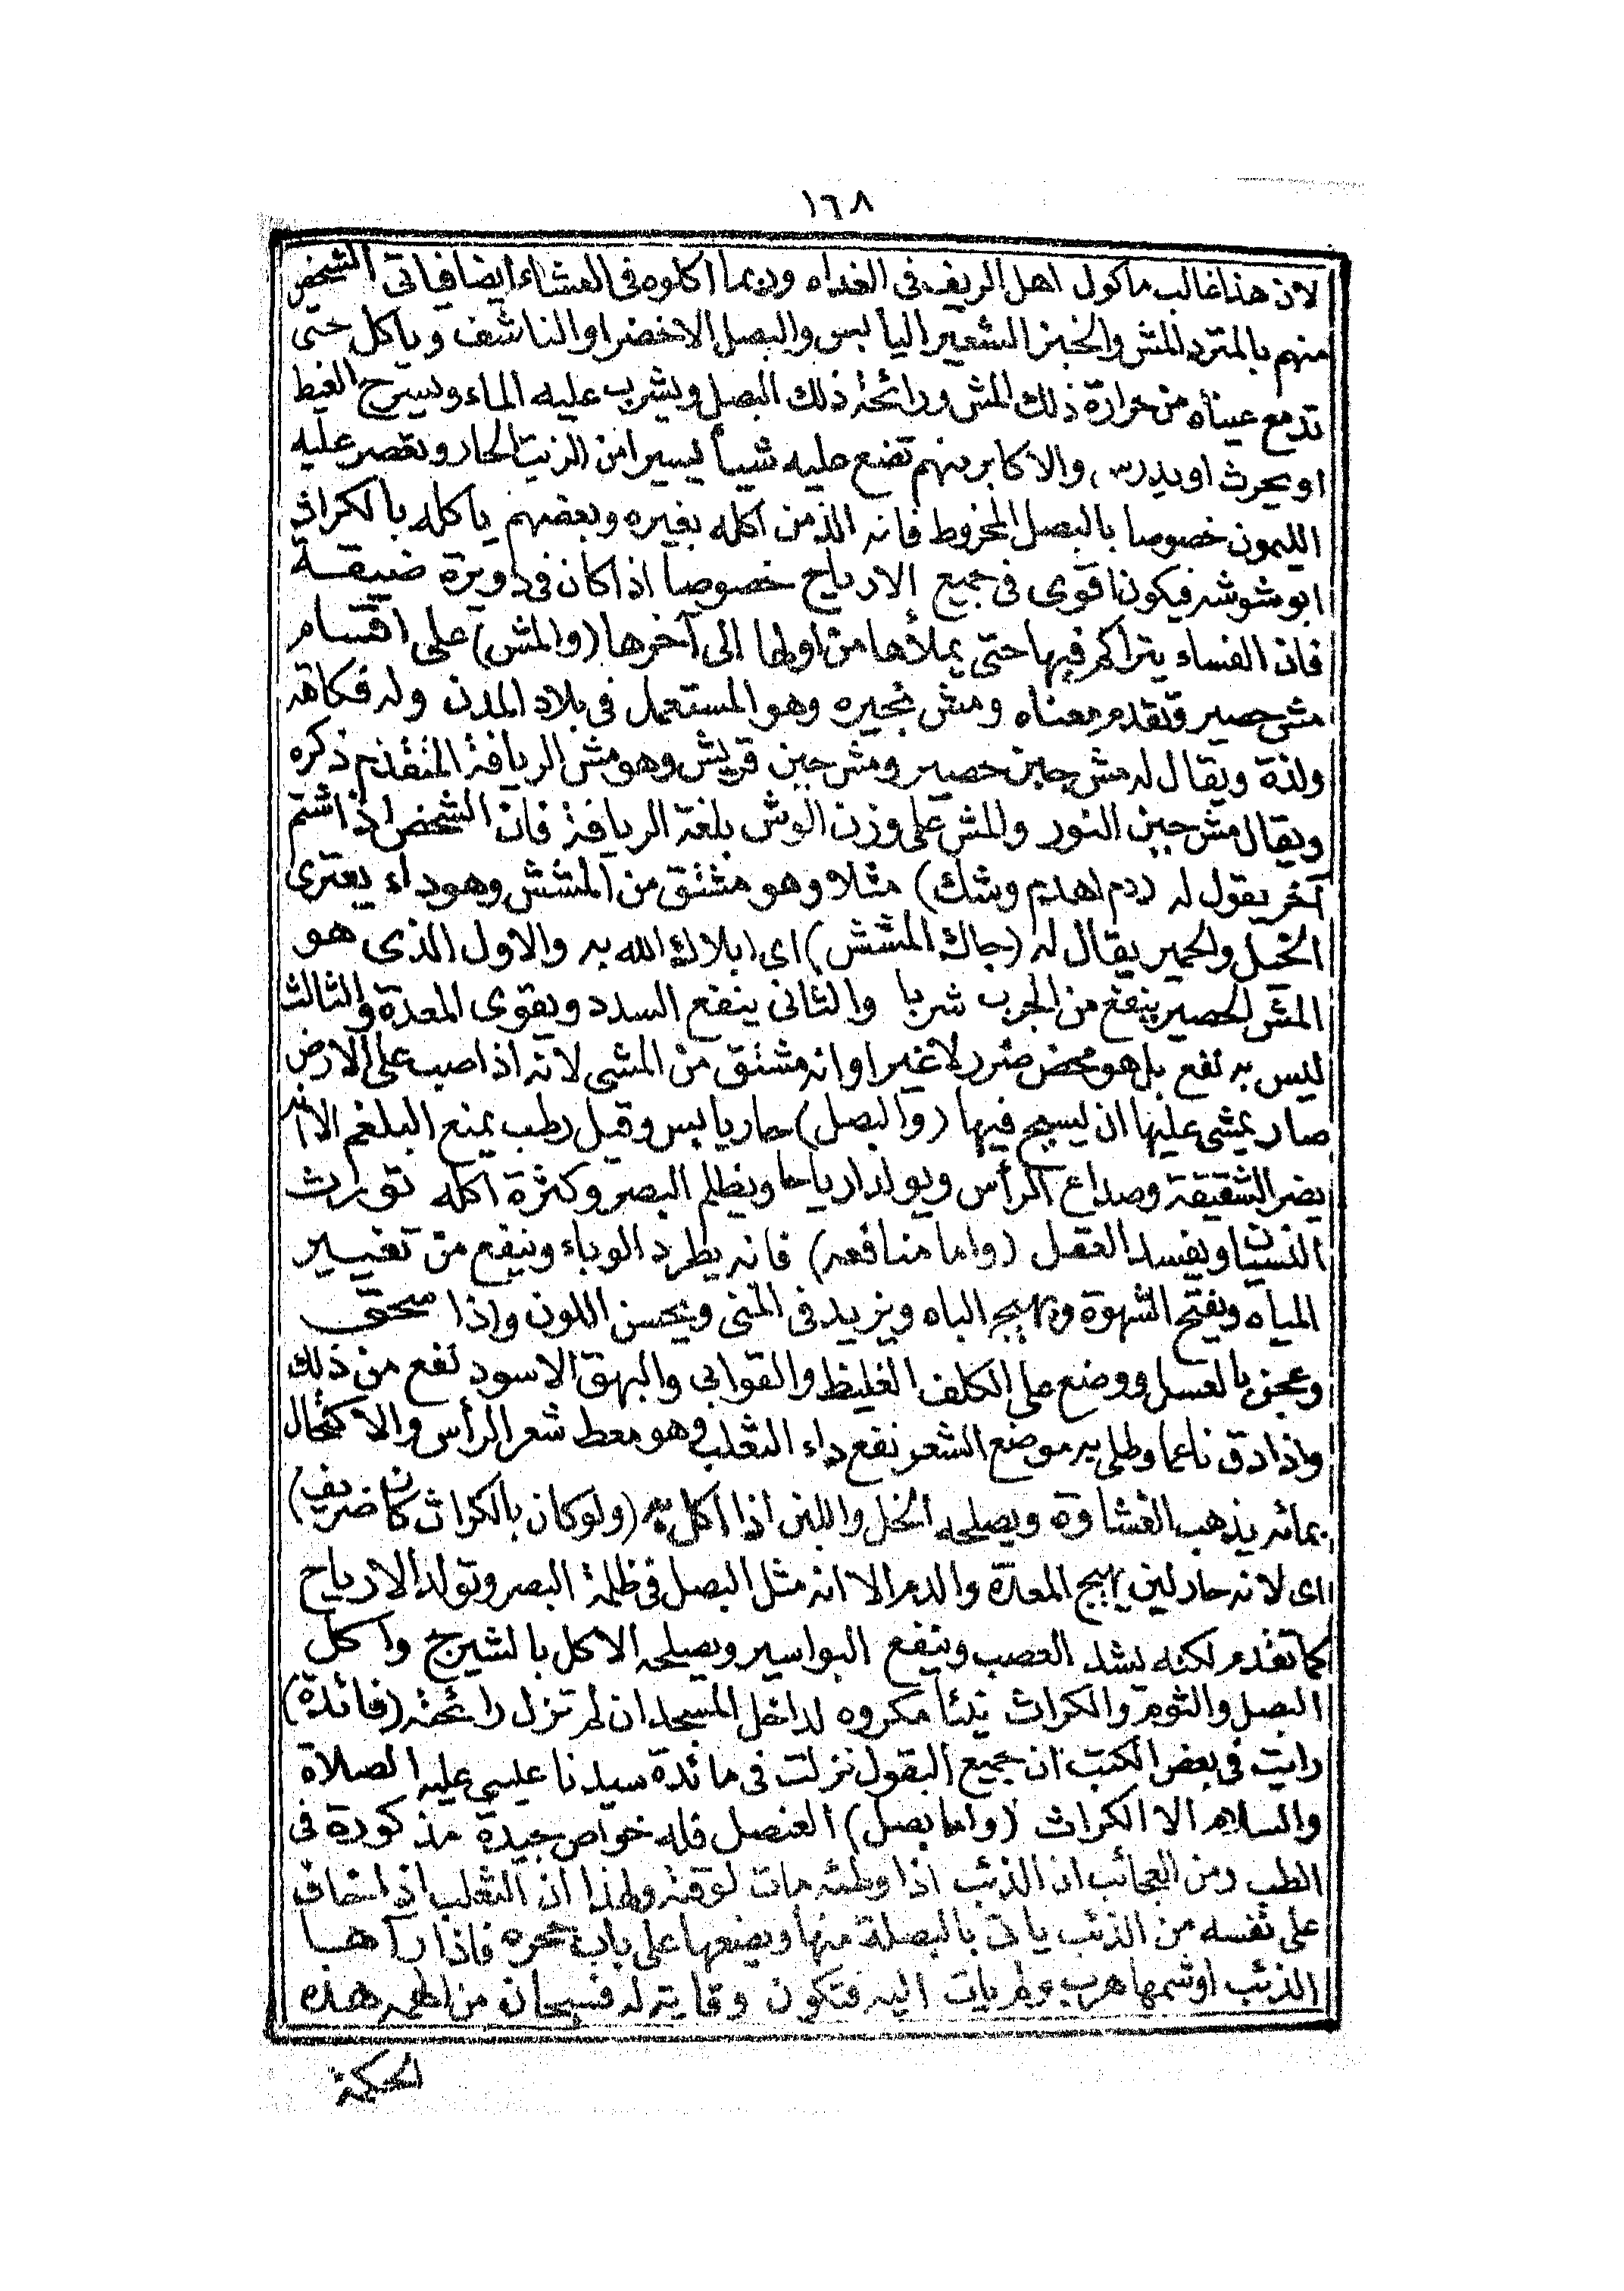 ١٦٨
لان هذا غالب ماكول اهل الريف فى الغداه وربما اكلوه فى العشاء ايضا فياتى الشخص
منهم بالمترد المش والخبز الشعير اليابس والبصل الاخضر او الناشف وياكل حتى
تدمع عيناه من حرارة ذلك المش ورائحة ذلك البصل ويشرب عليه الماء ويسرح الغيط
او يحرث او يدرس والاكابر منهم تضع عليه شيأ يسيرا من الزيت الحار وتقصر عليه
الليمون خصوصا بالبصل المخروط فانه الذ من اكله بغيره وبعضهم ياكله بالكراث
ابو شوشه فيكون اقوى فى جميع الارياح خصوصا اذا كان فى دويرة ضيقة
فان الفساء يتراكم فيها حتى يملأها من اولها الى آخرها (والمش) على اقسام
مش حصير وتقدم معناه ومش نجيره وهو المستعمل فى بلاد المدن وله فكاهة
ولذة ويقال له مش جبن حصير ومش جبن قريش وهو مش الريافة المتقدم ذكره
ويقال مش جبن النور والمش على وزن الوش بلغة الريافة فان الشخص اذا شتم
آخر يقول له (دم اهدم وشك) مثلا وهو مشتق من المشش وهو داء يعترى
الخيل والحمير يقال له (جاك المشش) اى ابلاك الله به والاول الذى هو
المش الحصير ينفع من الجرب شربا والثانى ينفع السدد ويقوى المعدة والثالث
ليس به نفع بل هو محض ضرر لا غير او انه مشتق من المشى لانه اذا صب على الارض
صار يمشى عليها ان ليسيح فيها (والبصل) حار يابس وقيل رطب يمنع البلغم الا انه
يضر الشقيقة وصداع الرأس ويولد ارياحا ويظلم البصر وكثرة اكله تورث
النسيان ويفسد العقل (واما منافعه) فانه يطرد الوباء وينفع من تغيير
المياه ويفتح الشهوة ويهيج الباه ويزيد فى المنى ويحسن اللون واذا سحق
وعجن بالعسل ووضع على الكلف الغليظ والقوابى والبهق الاسود نفع من ذلك
واذا دق ناعما وطلى به موضع الشعر نفع داء الثعلب وهو معط شعر الرأس والاكتحال
بمائه يذهب الغشاوة ويصلحه الخل واللبن اذا اكل به (ولو كان بالكراث كان ضريف)
اى لانه حار لين يهيج المعدة والدم الا انه مثل البصل فى ظلمة البصر وتولد الارياح
كما تقدم لكنه يشد العصب وينفع البواسير ويصلحه الاكل بالشيرج واكل
البصل والثوم والكراث نيئا مكروه لداخل المسجد ان لم تزل رائحته (فائدة)
رايت فى بعض الكتب ان جميع البقول نزلت فى مائدة سيدنا عيسى عليه الصلاة
والسلام الا الكراث (واما بصل) العنصل فله خواص جيدة مذكورة فى
الطب ومن العجائب ان الذئب اذا وطئه مات لوقته ولهذا ان الثعلب اذا خاف
على نفسه من الذئب ياتى بالبصلة منها ويضعها على باب جحره فاذا رآها
الذئب او شمها هرب ولم يات اليه فتكون وقاية له فسبحان من الهمه هذه
الحكمة